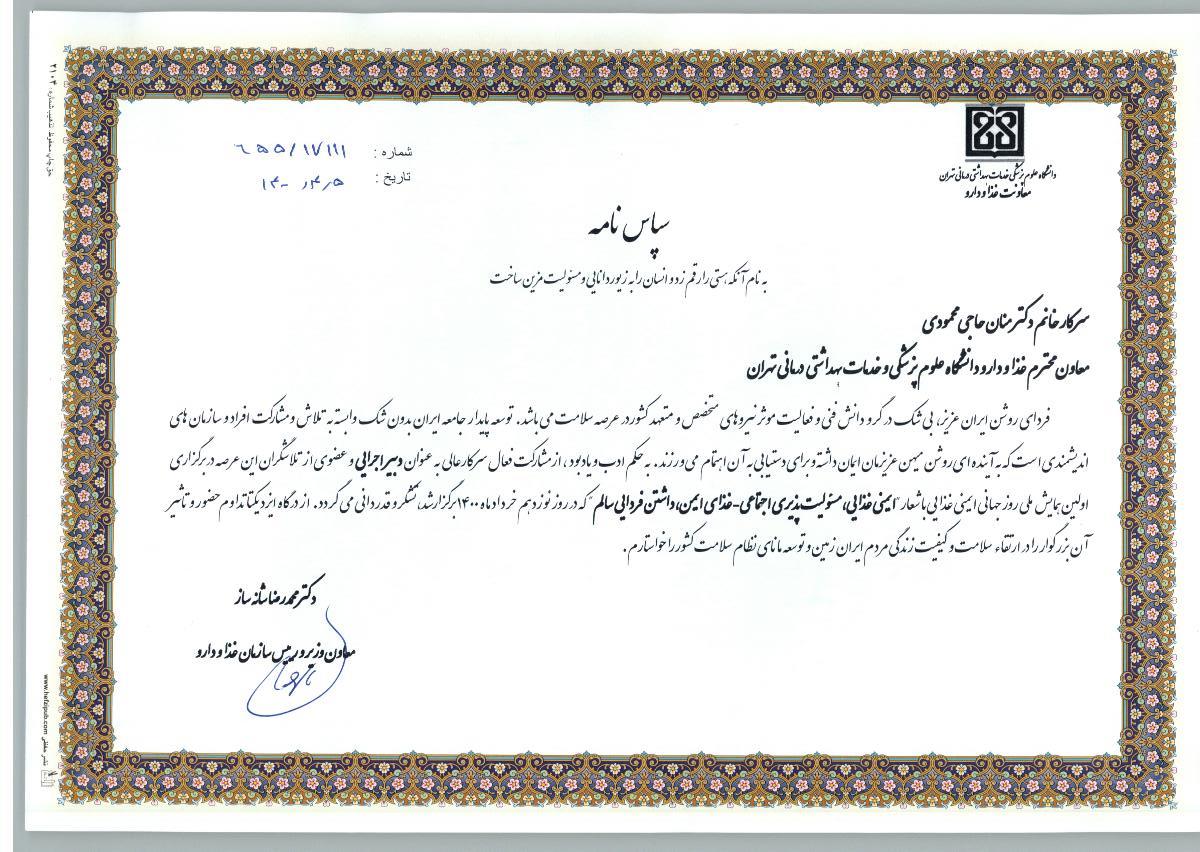 دانشگاه علوم پزشکی خدمات بهداشتی درمانی تهران
معاونت غذا و دارو
شماره : ۶۵۵/۱۷۱۱۱
تاریخ :
سپاس نامه
به نام آنکه هستی را رقم زد و انسان را به زیور دانایی و مسئولیت مزین ساخت
سرکار خانم دکتر منان حاجی محمودی
معاون محترم غذا و دارو دانشگاه علوم پزشکی و خدمات بهداشتی درمانی تهران
فردای روشن ایران عزیز، بی شک در گرو دانش فنی و فعالیت موثر نیروهای متخصص و متعهد کشور در عرصه سلامت می باشد. توسعه پایدار جامعه ایران بدون شک وابسته به تلاش و مشارکت افراد و سازمان های
اندیشمندی است که به آینده ای روشن میهن عزیزمان ایمان داشته و برای دستیابی به آن اهتمام می ورزند. به حکم ادب و یادبود ، از مشارکت فعال سرکار عالی به عنوان دبیر اجرایی و عضوی از تلاشگران این عرصه در برگزاری
اولین همایش ملی روز جهانی ایمنی غذایی با شعار "ایمنی غذایی، مسئولیت پذیری اجتماعی-غذای ایمن، داشتن فردایی سالم" که در روز نوزدهم خرداد ماه ۱۴۰۰ برگزار شد، تشکر و قدردانی می گردد. از درگاه ایزد یکتا تداوم حضور و تاثیر
آن بزرگوار را در ارتقاء سلامت و کیفیت زندگی مردم ایران زمین و توسعه مانای نظام سلامت کشور را خواستارم .
دکتر محمدرضا شانه ساز
معاون وزیر و رییس سازمان غذا و دارو
حق چاپ محفوظ. تذهیب شماره: ۲۱۰۴
www.hefzipub.com